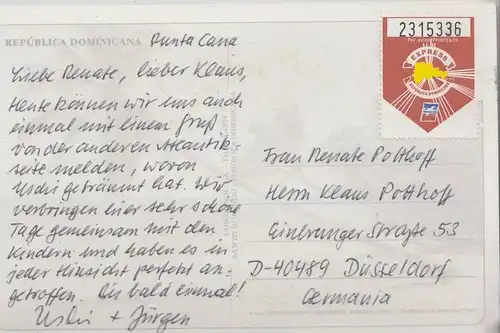 REPÚBLICA DOMINICANA Punta Cana
Liebe Renate, lieber Klaus,
Heute können wir uns auch
einmal mit einem Gruß
von der anderen Atlantik
seite melden, wovon
Uschi geträumt hat. Wir
verbringen hier sehr schöne
Tage gemeinsam mit den
Kindern und haben es in
jeder Hinsicht perfekt an-
getroffen. Bis bald einmal!
Uschi + Jürgen
2315336
Por avión/Prioritario
EXPRESS
REPUBLICA DOMINICANA
Frau Renate Potthoff
Herrn Klaus Potthoff
Einbrunger Straße 53
D-40489 Düsseldorf
Germania